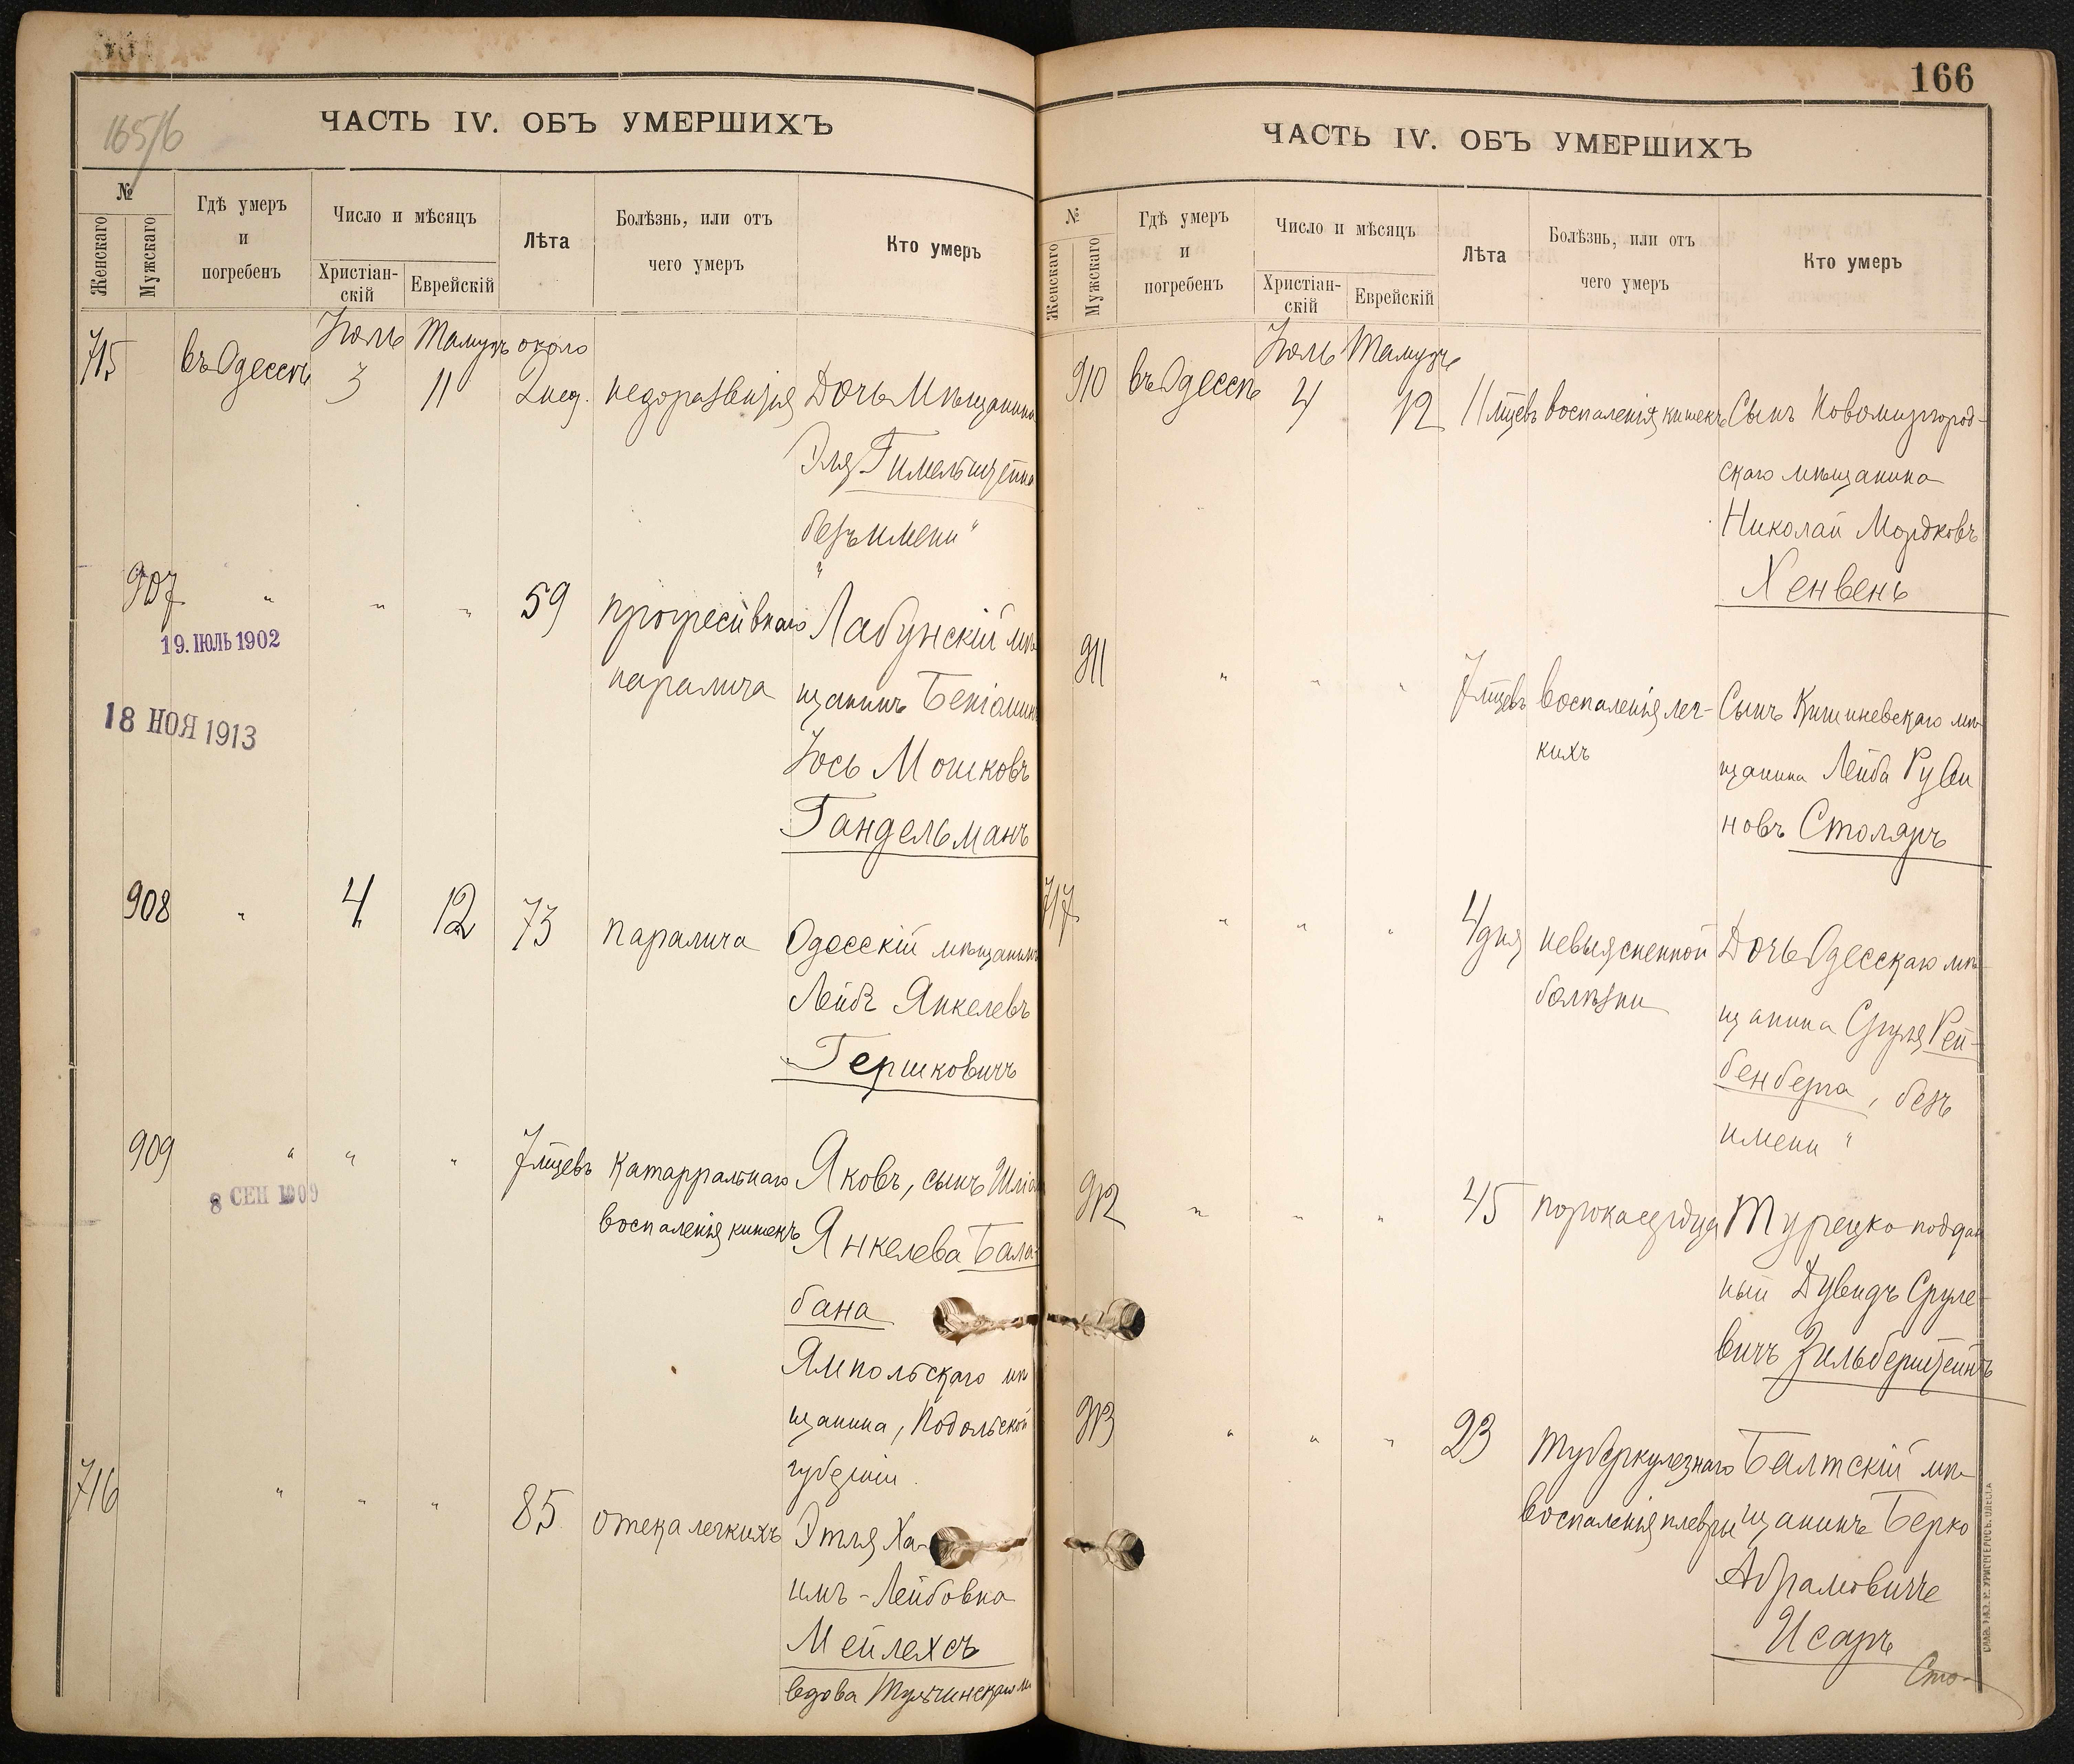 165/6
ЧАСТЬ IV. ОБЪ УМЕРШИХЪ
№
Женскаго
Мужскаго
Гдѣ умеръ
и
погребенъ
Число и мѣсяцъ
Христіан-
скій
Еврейскій
Лѣта
Болѣзнь, или отъ
чего умеръ
Кто умеръ
Іюль Тамузъ около
715 въ Одессѣ 3 11 2 нед. недоразвитія Дочь Мѣщанина
Эля Гимельштейна
безъ имени"
907 " " " 59 прогресивнаго Лабунскій мѣ
19. ІЮЛЬ 1902
паралича щанинъ Беніамин
18 НОЯ 1913
Іось Мошковъ
Гандельманъ
908 " 4 12 73 паралича Одесскій мѣщанинъ
Лейбъ Янкелевъ
Гершковичъ
909 " " " 7 мцевъ катарральнаго Яковъ, сынъ
8 СЕН 1909
воспаленія кишекъ Янкелева Бала-
бана
Ямпольскаго мѣ
щанина, Подольской
губерніи.
716 " " " 85 отека легкихъ Этля Ха-
имъ-Лейбовна
Мейлехсъ
вдова Тульчинскаго м
166
ЧАСТЬ IV. ОБЪ УМЕРШИХЪ
№
Женскаго
Мужскаго
Гдѣ умеръ
и
погребенъ
Число и мѣсяцъ
Христіан-
скій
Еврейскій
Лѣта
Болѣзнь, или отъ
чего умеръ
Кто умеръ
Іюль Тамузъ
910 въ Одессѣ 4 12 11 мцевъ воспаленія кишекъ Сынъ Новомиргород-
скаго мѣщанина
Николай Мордковъ
Хенвень
911 " " " 7 мцевъ воспаленія лег- Сынъ Кишиневскаго мѣ-
кихъ щанина Лейба Руви
новъ Столяръ
717 " " " 4 дня невыясненной Дочь Одесскаго мѣ-
болѣзни щанина Сруля Рей-
бенберга, безъ
имени "
912 " " " 45 порока сердца Турецко поддан
ный Дувидъ Сруле-
вичъ Зильберштейнъ
913 " " " 23 туберкулезнаго Балтскій мѣ-
воспаленія плевры щанинъ Берко
Абрамовичъ
Исаръ
Сто-